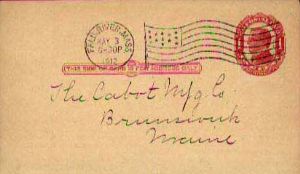 FALL RIVER, MASS.
MAY 3
6-30P
1912
THIS SIDE OF CARD IS FOR ADDRESS ONLY
1
The Cabot Mfg. Co.
Brunswick
Maine